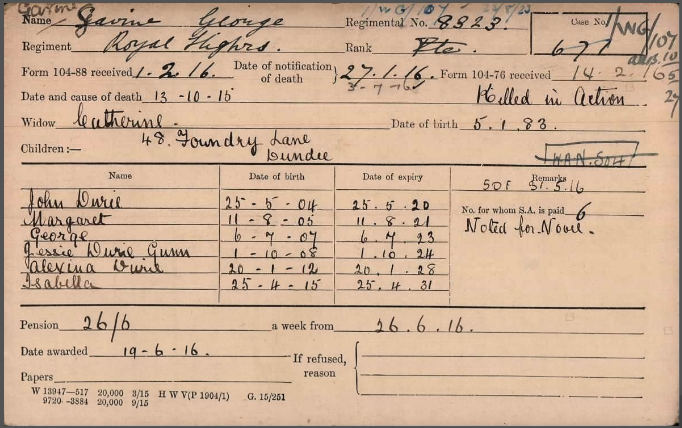 Gavine
Name Gavine George Regimental No. 8823. Case No. /WG/107
Regiment Royal Highrs. Rank Pte. 671
Form 104-88 received 1.2.16. Date of notification of death } 27.1.16. Form 104-76 received 14.2.16
3-7-16
Date and cause of death 13-10-15 Killed in Action
Widow Catherine. Date of birth 5.1.83.
48. Foundry Lane
Dundee
Children:—
WAN.504
Name Date of birth Date of expiry Remarks
SOF 31.5.16
John Durie 25-5-04 25.5.20
Margaret 11-8-05 11.8.21 No. for whom S.A. is paid 6
George 6-7-07 6.7.23 Noted for Novr.
Jessie Durie Gunn 1-10-08 1.10.24
Alexina Durie 20-1-12 20.1.28
Isabella 25-4-15 25.4.31
Pension 26/6 a week from 26.6.16.
Date awarded 19-6-16. If refused, reason
Papers
W 13947—517 20,000 3/15 H W V(P 1904/1) G. 15/251
9720-3884 20,000 9/15